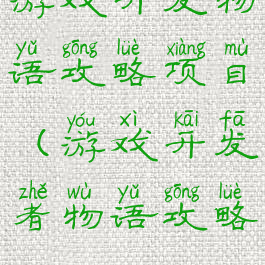 游戏开发物
yǔ gōng lüè xiàng mù
语攻略项目
yóu xì kāi fā
（游戏开发
zhě wù yǔ gōng lüè
者物语攻略